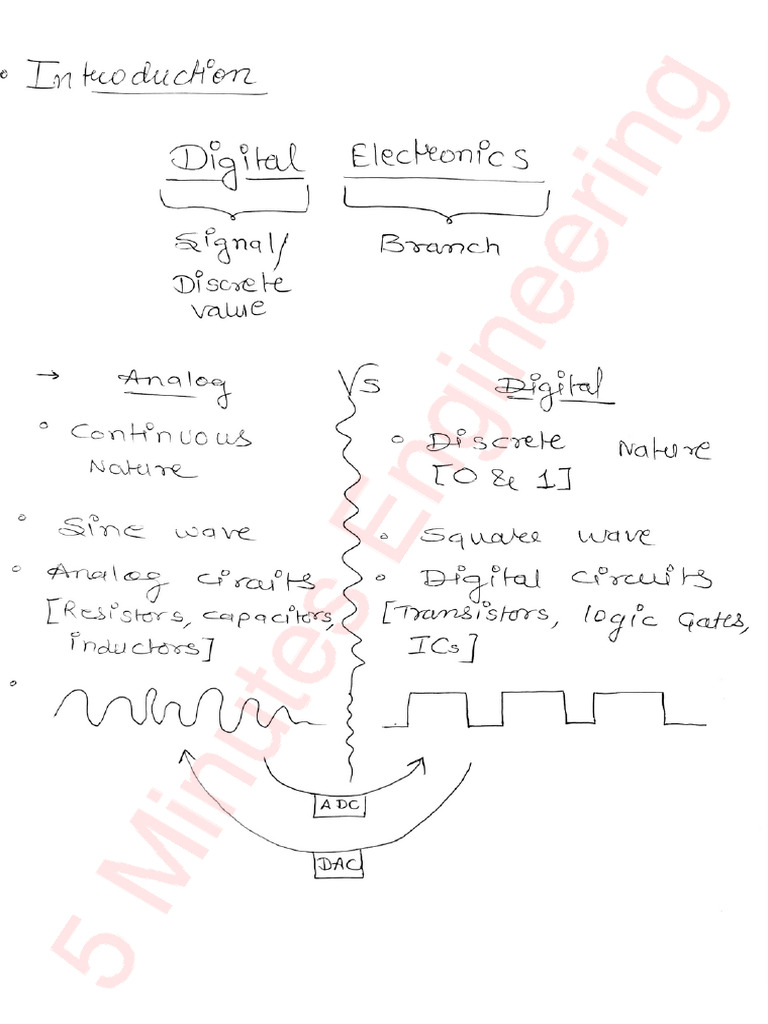 Introduction
Digital Electronics
Signal/ Branch
Discrete
value
→ Analog Vs Digital
Continuous
Nature
Discrete Nature
[0 & 1]
Sine wave
Square wave
Analog circuits
[Resistors, capacitors,
inductors]
Digital circuits
[Transistors, logic Gates,
ICs]
ADC
DAC
5 Minutes Engineering